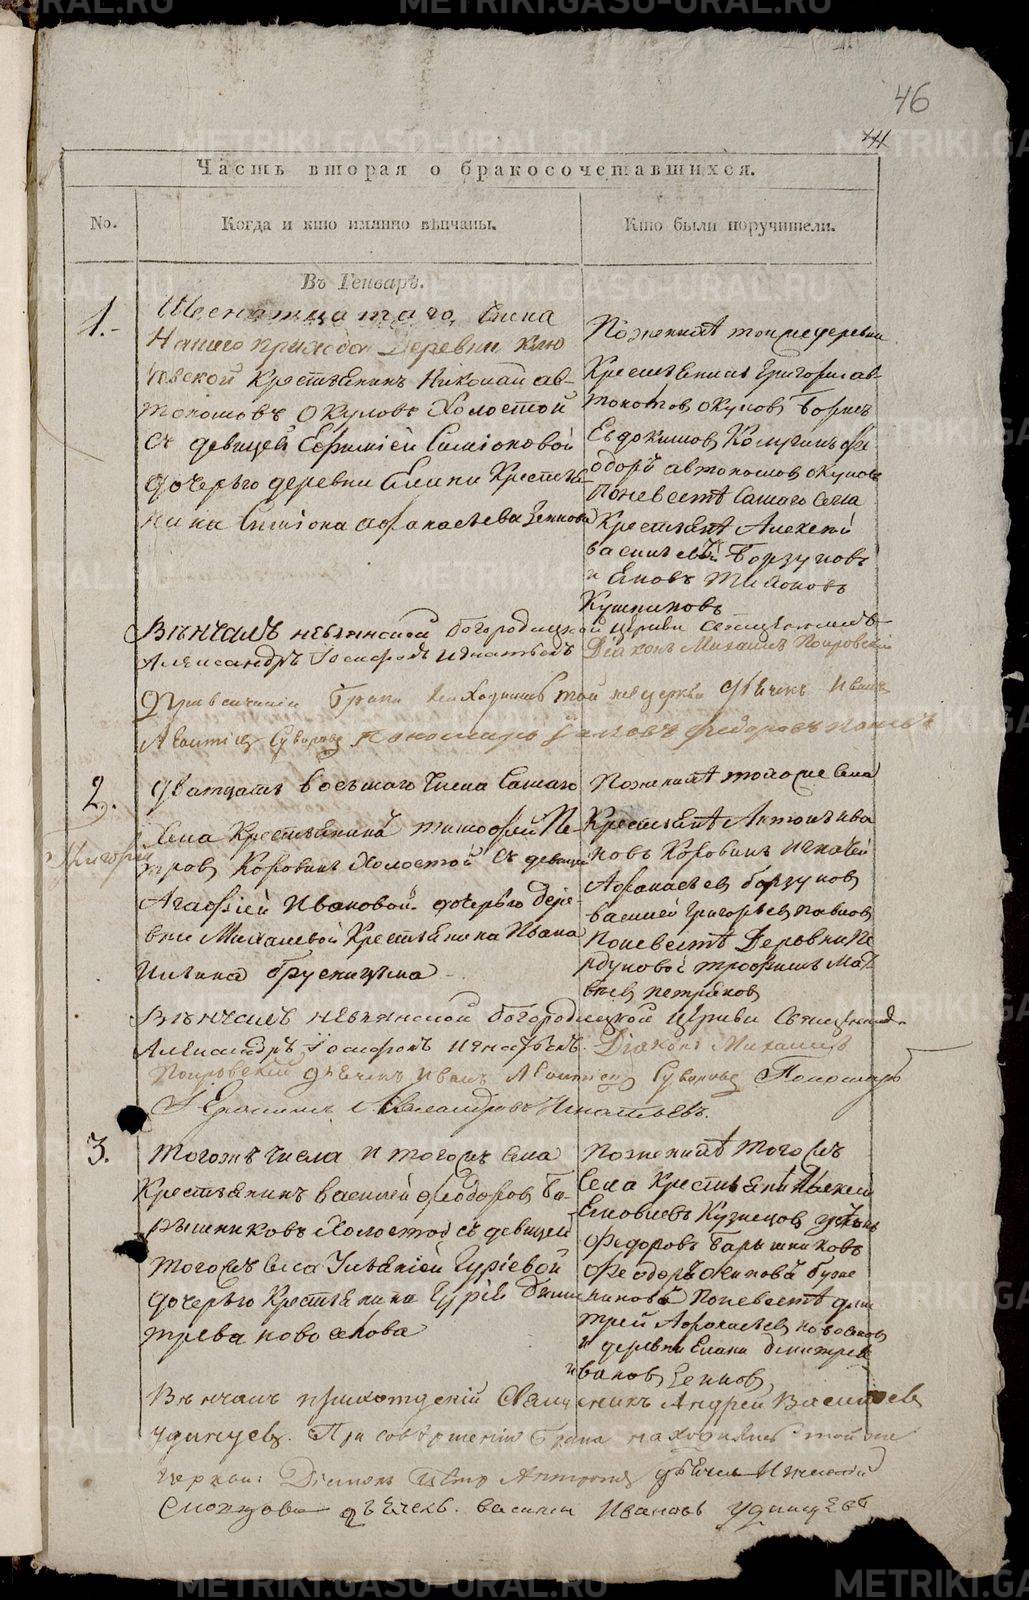 METRIKI.GASO-URAL.RU
46
44
Часть вторая о бракосочетавшихся.
No.
Когда и кто имянно вѣнчаны.
Кто были поручители.
Въ Генварѣ.
1.
Шеснатцатаго Числа
Нашего прихода Деревни Клю
Крестьянинъ Николай Ав-
тономовъ Окуловъ Холостой
Съ девицей Ефимией Симіоновой
дочерью деревни Елани Крестья-
нина Симіона Афанасьева
По женихѣ тоиже деревни
Крестьянинъ Григорий Ав-
тономов Окулов Борис
Евдокимов Фе
одоръ Автономов Окулов
По невестѣ Самаго Села
Крестьянѣ Алексей
Васильевъ Борзуновъ
и Тихоновъ
Кушниковъ
Вѣнчалъ Невьянской Богородицкой Церкви Священникъ
Александръ Іосифовъ Игнатьевъ Діаконъ Михаилъ Покровский
При венчании Брака Находились той же церкви дьячекъ Иванъ
Леонтиев Суворов Пономарь Федоровъ Поповъ
2.
Дватцать Восьмаго Числа Самаго
Села Крестьянинъ Тимофей Пе-
тров Коровинъ Холостой Съ девицей
Агафией Ивановой дочерью Дере-
вни Михалевой Крестьянина Ивана
Ильина Брусницына
По женихѣ тогоже Села
Крестьянѣ Антонъ Ива
новъ Коровинъ Игнатей
Афанасьев Борзунов
Василей Григорьев Павлов
По невестѣ Деревни Пе
рдуновой Трофимъ Мат
веев Петряков
Вѣнчалъ Невьянской Богородицкой Церкви Священникъ
Александръ Іосифовъ Игнатьевъ Діаконъ Михаилъ
Покровский дьячекъ Иванъ Леонтиев Суворов Пономарь
Александровъ Игнатьевъ.
3.
Тогожъ Числа и тогожъ Села
Крестьянинъ Василей Феодоров Ба-
рышниковъ Холостой съ девицей
тогожъ Села Ульянией Гуриевой
дочерью Крестьянина Гурия Дми
треева Новоселова
По женихѣ тогожъ
Села Крестьянѣ Алексей
Кузнецов
Федоровъ Барышниковъ
Феодоръ
По невестѣ Дми
трей Афонасьев Новоселов
и деревни Елани Дмитрей
Иванов
Вѣнчалъ Приходский Священникъ Андрей Васильев
Удинцев. При совершении Брака находились той же
церкви: Діаконъ Петр дьячекъ
дьячекъ. Василий Ивановъ Удинцевъ